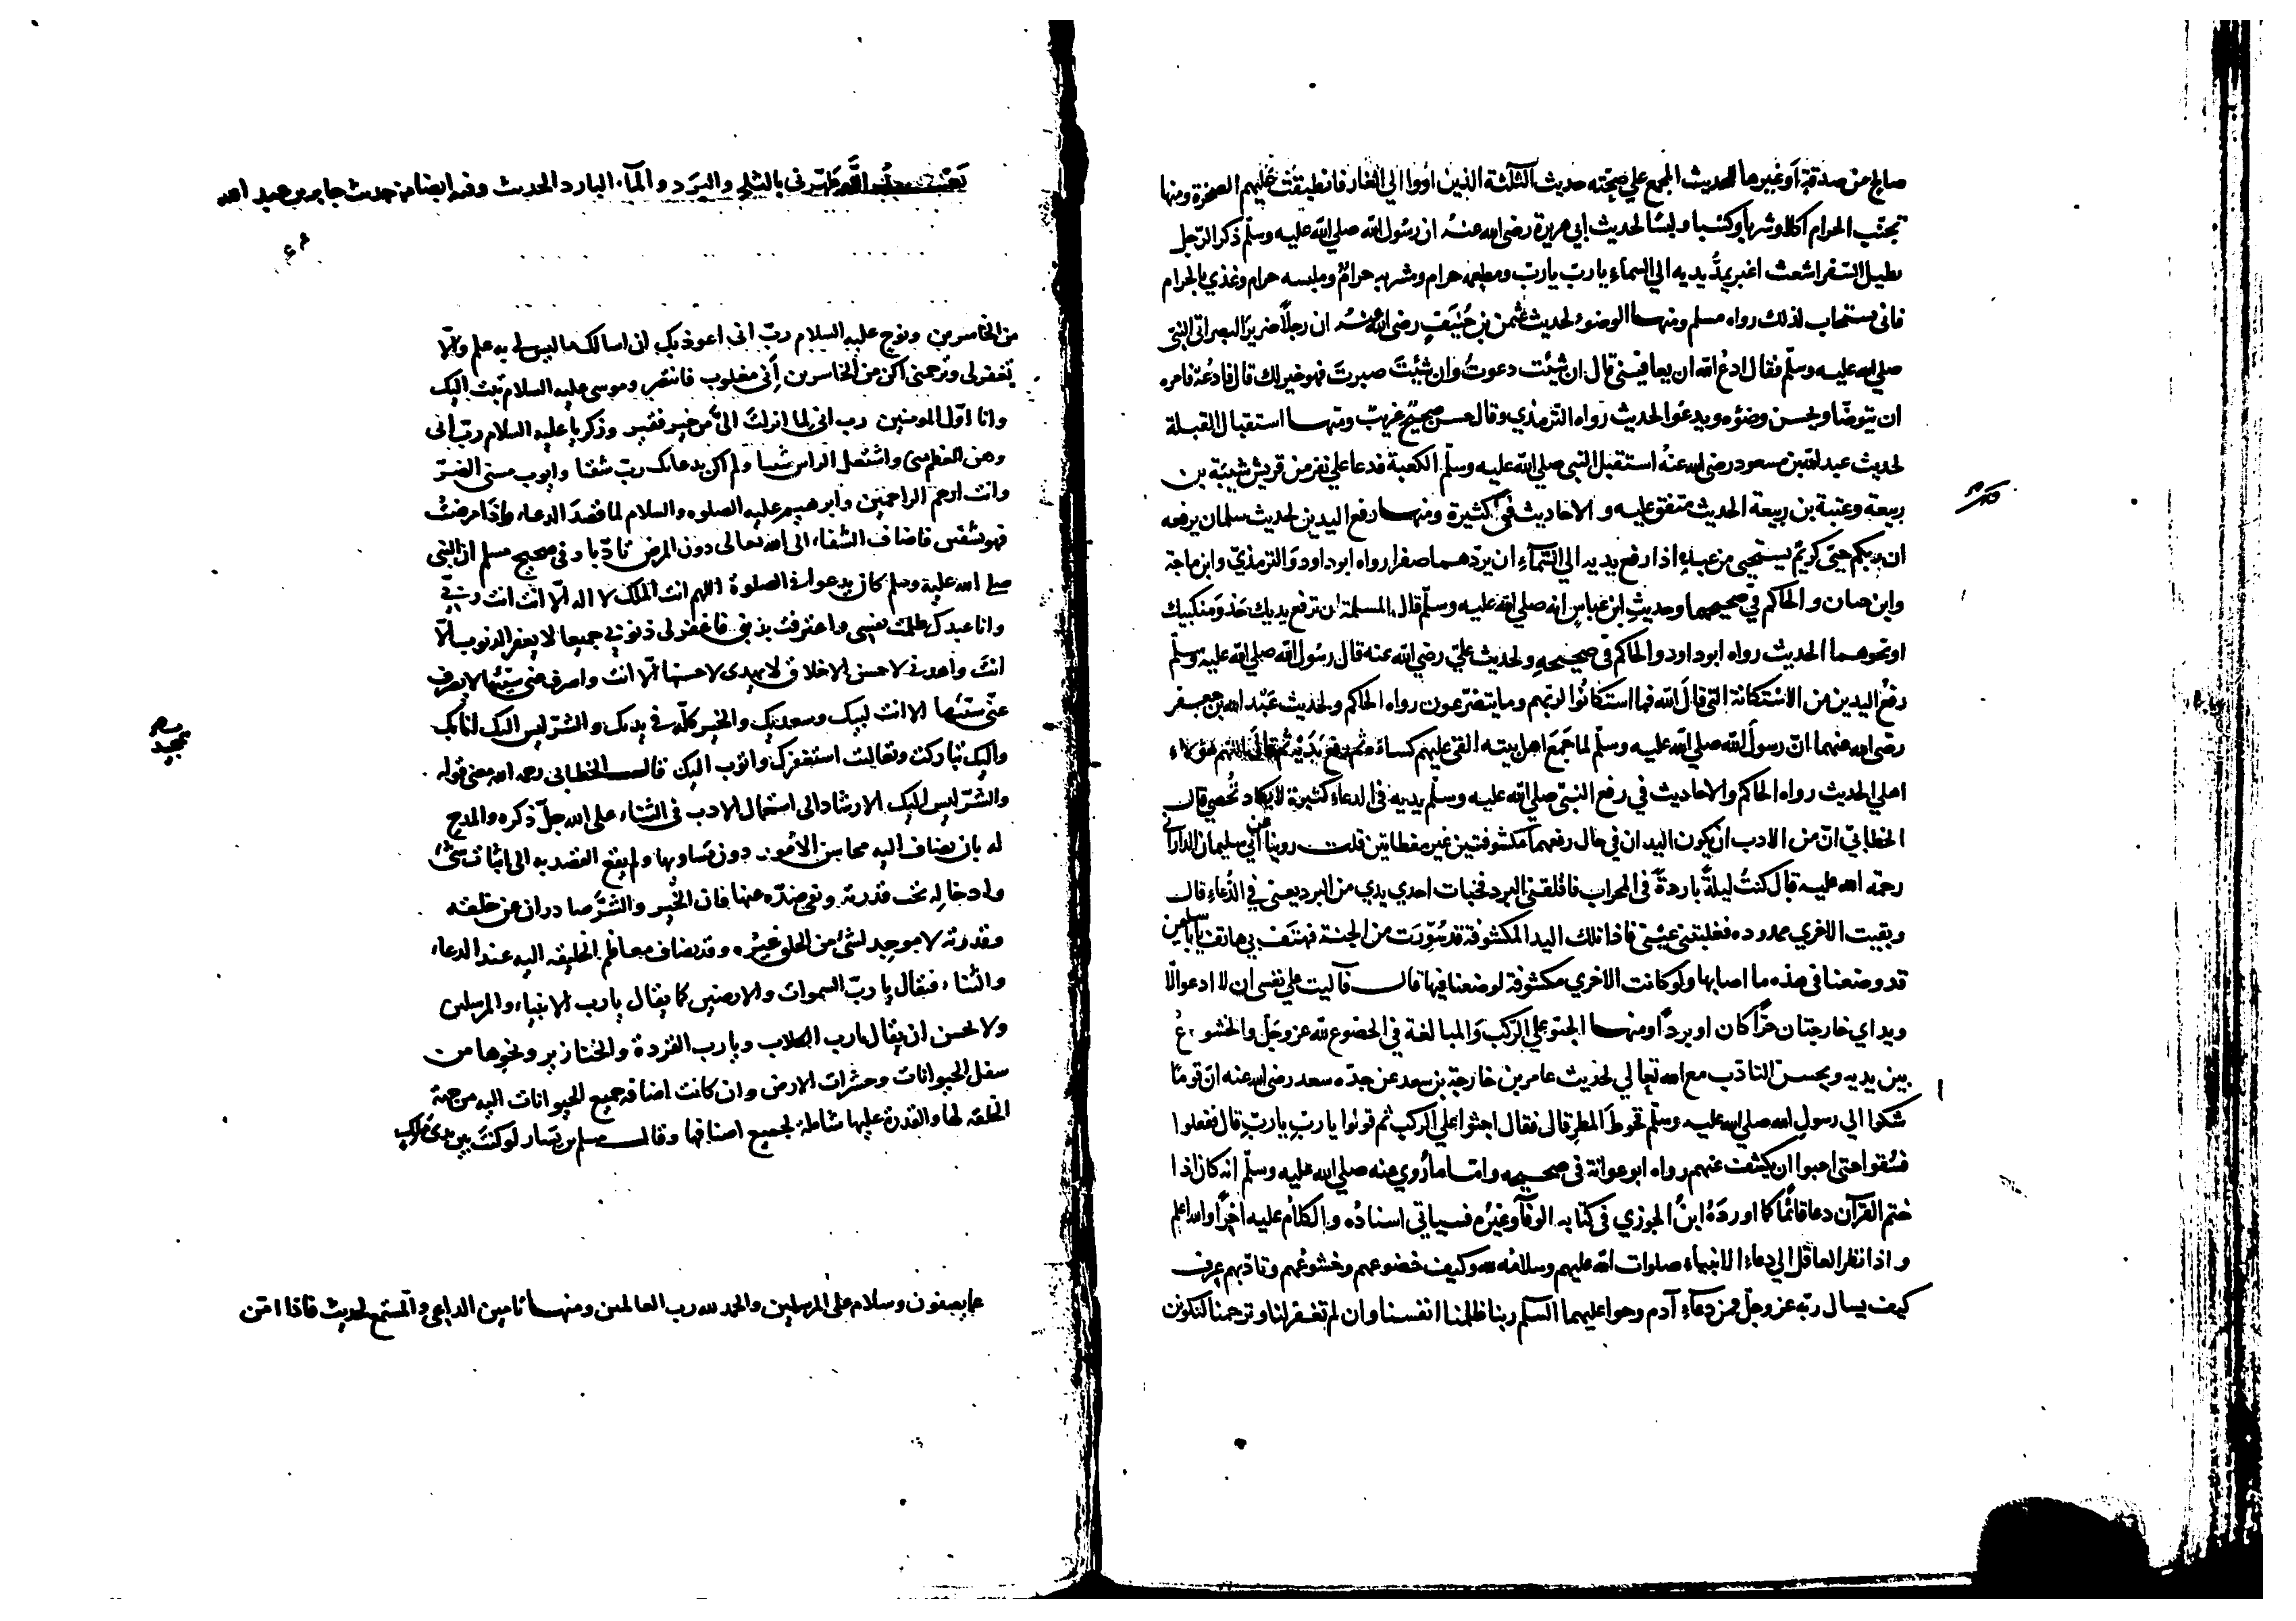 صالح من صدقة او غيرها لحديث المجمع علي صحته حديث الثلثة الذين اووا الي الغار فانطبقت عليهم الصخرة ومنها
تجنّب الحرام اكلا وشربا وكسبا ولبسًا لحديث ابي هريرة رضى الله عنه ان رسول الله صلي الله عليه وسلّم ذكر الرّجل
يطيل السّفر اشعث اغبر يمدُّ يديه الي السماء يا ربّ يا ربّ ومطعمه حرام ومشربه حرامٌ وملبسه حرام وغذي بالحرام
فانى يستجاب لذلك رواه مسلم ومنها الوضوء لحديث عثمن بن حُنَيفٍ رضى الله عنه ان رجلاً ضرير البصر اتى النبى
صلي الله عليه وسلّم فقال ادعُ الله ان يعافيني قال ان شئتَ دعوتُ وان شئتَ صبرتَ فهو خير لك قال فادعُهُ فامره
ان يتوضّا ويحسن وضوءه ويدعو الحديث رواه الترمذي وقال حسن صحيح غريب ومنها استقبال القبلة
لحديث عبد الله بن مسعود رضى الله عنهُ استقبل النبى صلي الله عليه وسلّم الكعبة فدعا علي نفر من قريش شيبة بن
ربيعة وعتبة بن ربيعة الحديث متفق عليه والاحاديث في كثيرة ومنها رفع اليدين لحديث سلمان يرفعه
ان ربكم حيىّ كريمٌ يستحيى من عبده اذا رفع يديه الي السّماء ان يردّهما صفرا رواه ابو داود والترمذيّ وابن ماجة
وابن حبان والحاكم في صحيحهما وحديثِ ابن عباسٍ انه صلي الله عليه وسلّم قال المسلمة ان ترفع يديك حذو منكبيك
او نحوهما الحديث رواه ابو داود والحاكم في صحيحهِ ولحديث عليّ رضي الله عنه قال رسُول الله صلي الله عليه وسلّم
رفعُ اليدين من الاستكانة التى قالَ الله فما استكانُوا لربّهم وما يتضرّعون رواه الحاكم ولحديث عَبد الله بن جعفر
رضى الله عنهما انّ رسولَ الله صلي الله عليه وسلّم لما جَمَعَ اهل بيته القى عليهم كساءه ثم رفع يَدَيْه ثم قال اللهم هؤلاء
اهلي الحديث رواه الحاكم والاحاديث في رفع النبىّ صلي الله عليه وسلّم يديه فى الدعاء كثيرة لا تكاد تُحصي قال
الخطابيّ انّ من الادب ان يكون اليدان في حال رفعهما مكشوفتين غير مغطاتين قلت روينا عن ابي سليمان الداراني
رحمة الله عليه قال كنتُ ليلةً باردةً فى المحراب فاقلقنى البرد فخبات احدي يدي من البرد يعنى في الدُعاء قال
وبقيت الاخري ممدوده فغلبتنى عيْنى فاذا تلك اليد المكشوفة قد سُوّرَت من الجنة فهتف بي هاتف يا ابا سليمن
قد وضعنا فى هذه ما اصابها ولو كانت الاخري مكشوفة لوضعنا فيها قال فآليت علي نفسى ان لا ادعو الّا
ويداي خارجتان حرًّا كان او بردًا ومنها الجثو علي الرّكب والمبالغة في الخضوع لله عز وجل والخشوع
بين يديه ويحسن التادّب مع الله تعالي لحديث عامر بن خارجة بن سعد عن جدّه سعد رضى الله عنه انّ قومًا
شكوا الي رسولِ الله صلي الله عليه وسلّم قحوطَ المطرِ قال فقال اجثوا علي الركب ثم قولوا يا ربّ يا ربّ قال ففعلوا
فسُقوا حتى احبوا ان يكشف عنهم رواه ابو عوانة فى صحيحه وامّا ما رُوي عنه صلي الله عليه وسلّم انه كان اذا
ختم القرآن دعا قائمًا كما اوردَهُ ابنُ الجوزي في كتابه الوفا وغيرُه فسياتي اسنادُه والكلامُ عليه اخرًا والله اعلم
واذا نظر العاقل الي دعاء الانبياء صلوات الله عليهم وسلامُه وكيف خضوعهم وخشوعُهم وتادّبهم عرف
كيف يسال ربّه عز وجلّ فمن دعاء آدم وحوا عليهما السّلم ربنا ظلمنا انفسنا وان لم تغفر لنا وترحمنا لنكونن
اللهم طهّرنى بالثلج والبرَد والماء البارد الحديث وفيه ايضا من حديث جابر بن عبد الله
من الخاسرين ونوح عليه السلام ربّ انى اعوذ بك ان اسالك ما ليس لى به علم والّا
تغفر لى وترحمنى اكن من الخاسرين أنى مغلوب فانتصر وموسى عليه السلام تبت اليك
وانا اوّل المومنين رب انى لما انزلت الىّ من خير فقير وزكريا عليه السلام ربّ انى
وهن العظم منى واشتعل الراس شيبا ولم اكن بدعائك ربّ شقيا وايوب مسنى الضرّ
وانت ارحم الراحمين وابرهيم عليه الصلوه والسلام لما قصد الدعاء واذا مرضتُ
فهو يشفين فاضاف الشفاء الى الله تعالى دون المرض تادّبا وفى صحيح مسلم ان النبى
صلى الله عليه وسلم كان يدعو فى الصلوة اللهم انت الملك لا اله الّا انت انت ربّي
وانا عبدك ظلمت نفسى واعترفت بذنبى فاغفر لى ذنوبي جميعا لا يغفر الذنوب الّا
انت واهدنى لاحسن الاخلاق لا يهدى لاحسنها الّا انت واصرف عنى سيّئها لا يصرف
عنّى سيّئها الا انت لبيك وسعديك والخير كلّه فى يديك والشرّ ليس اليك انا بك
واليك تباركت وتعاليت استغفرك واتوب اليك قال الخطابى رحمه الله معنى قوله
والشرّ ليس اليك الارشاد الى استعمال الادب فى الثناء على الله جلّ ذكره والمدح
له بان يضاف اليه محاسن الأمور دون مساويها ولم يقع القصد به الى اثبات شئ
وادخاله تحت قدرته ونفى ضدّه عنها فان الخير والشرّ صادران عن خلقه
وقدرته لا موجد لشئ من الخلق غيره وقد يضاف معاظم الخليقه اليه عند الدعاء
والثناء فيقال يا ربّ السموات والارضين كما يقال يا رب الانبياء والمرسلين
ولا يحسن ان يقال يا رب الكلاب ويا رب القردة والخنازير ونحوها من
سفل الحيوانات وحشرات الارض وان كانت اضافة جميع الحيوانات اليه من جهة
الخلقه لها والقدرة عليها شاملة لجميع اصنافها وقال مسلم بن يسار لو كنتَ بين يدى ملك
عما يصفون وسلام على المرسلين والحمد لله رب العالمين ومنها تامين الداعى والمستمع لحديث فاذا امّن